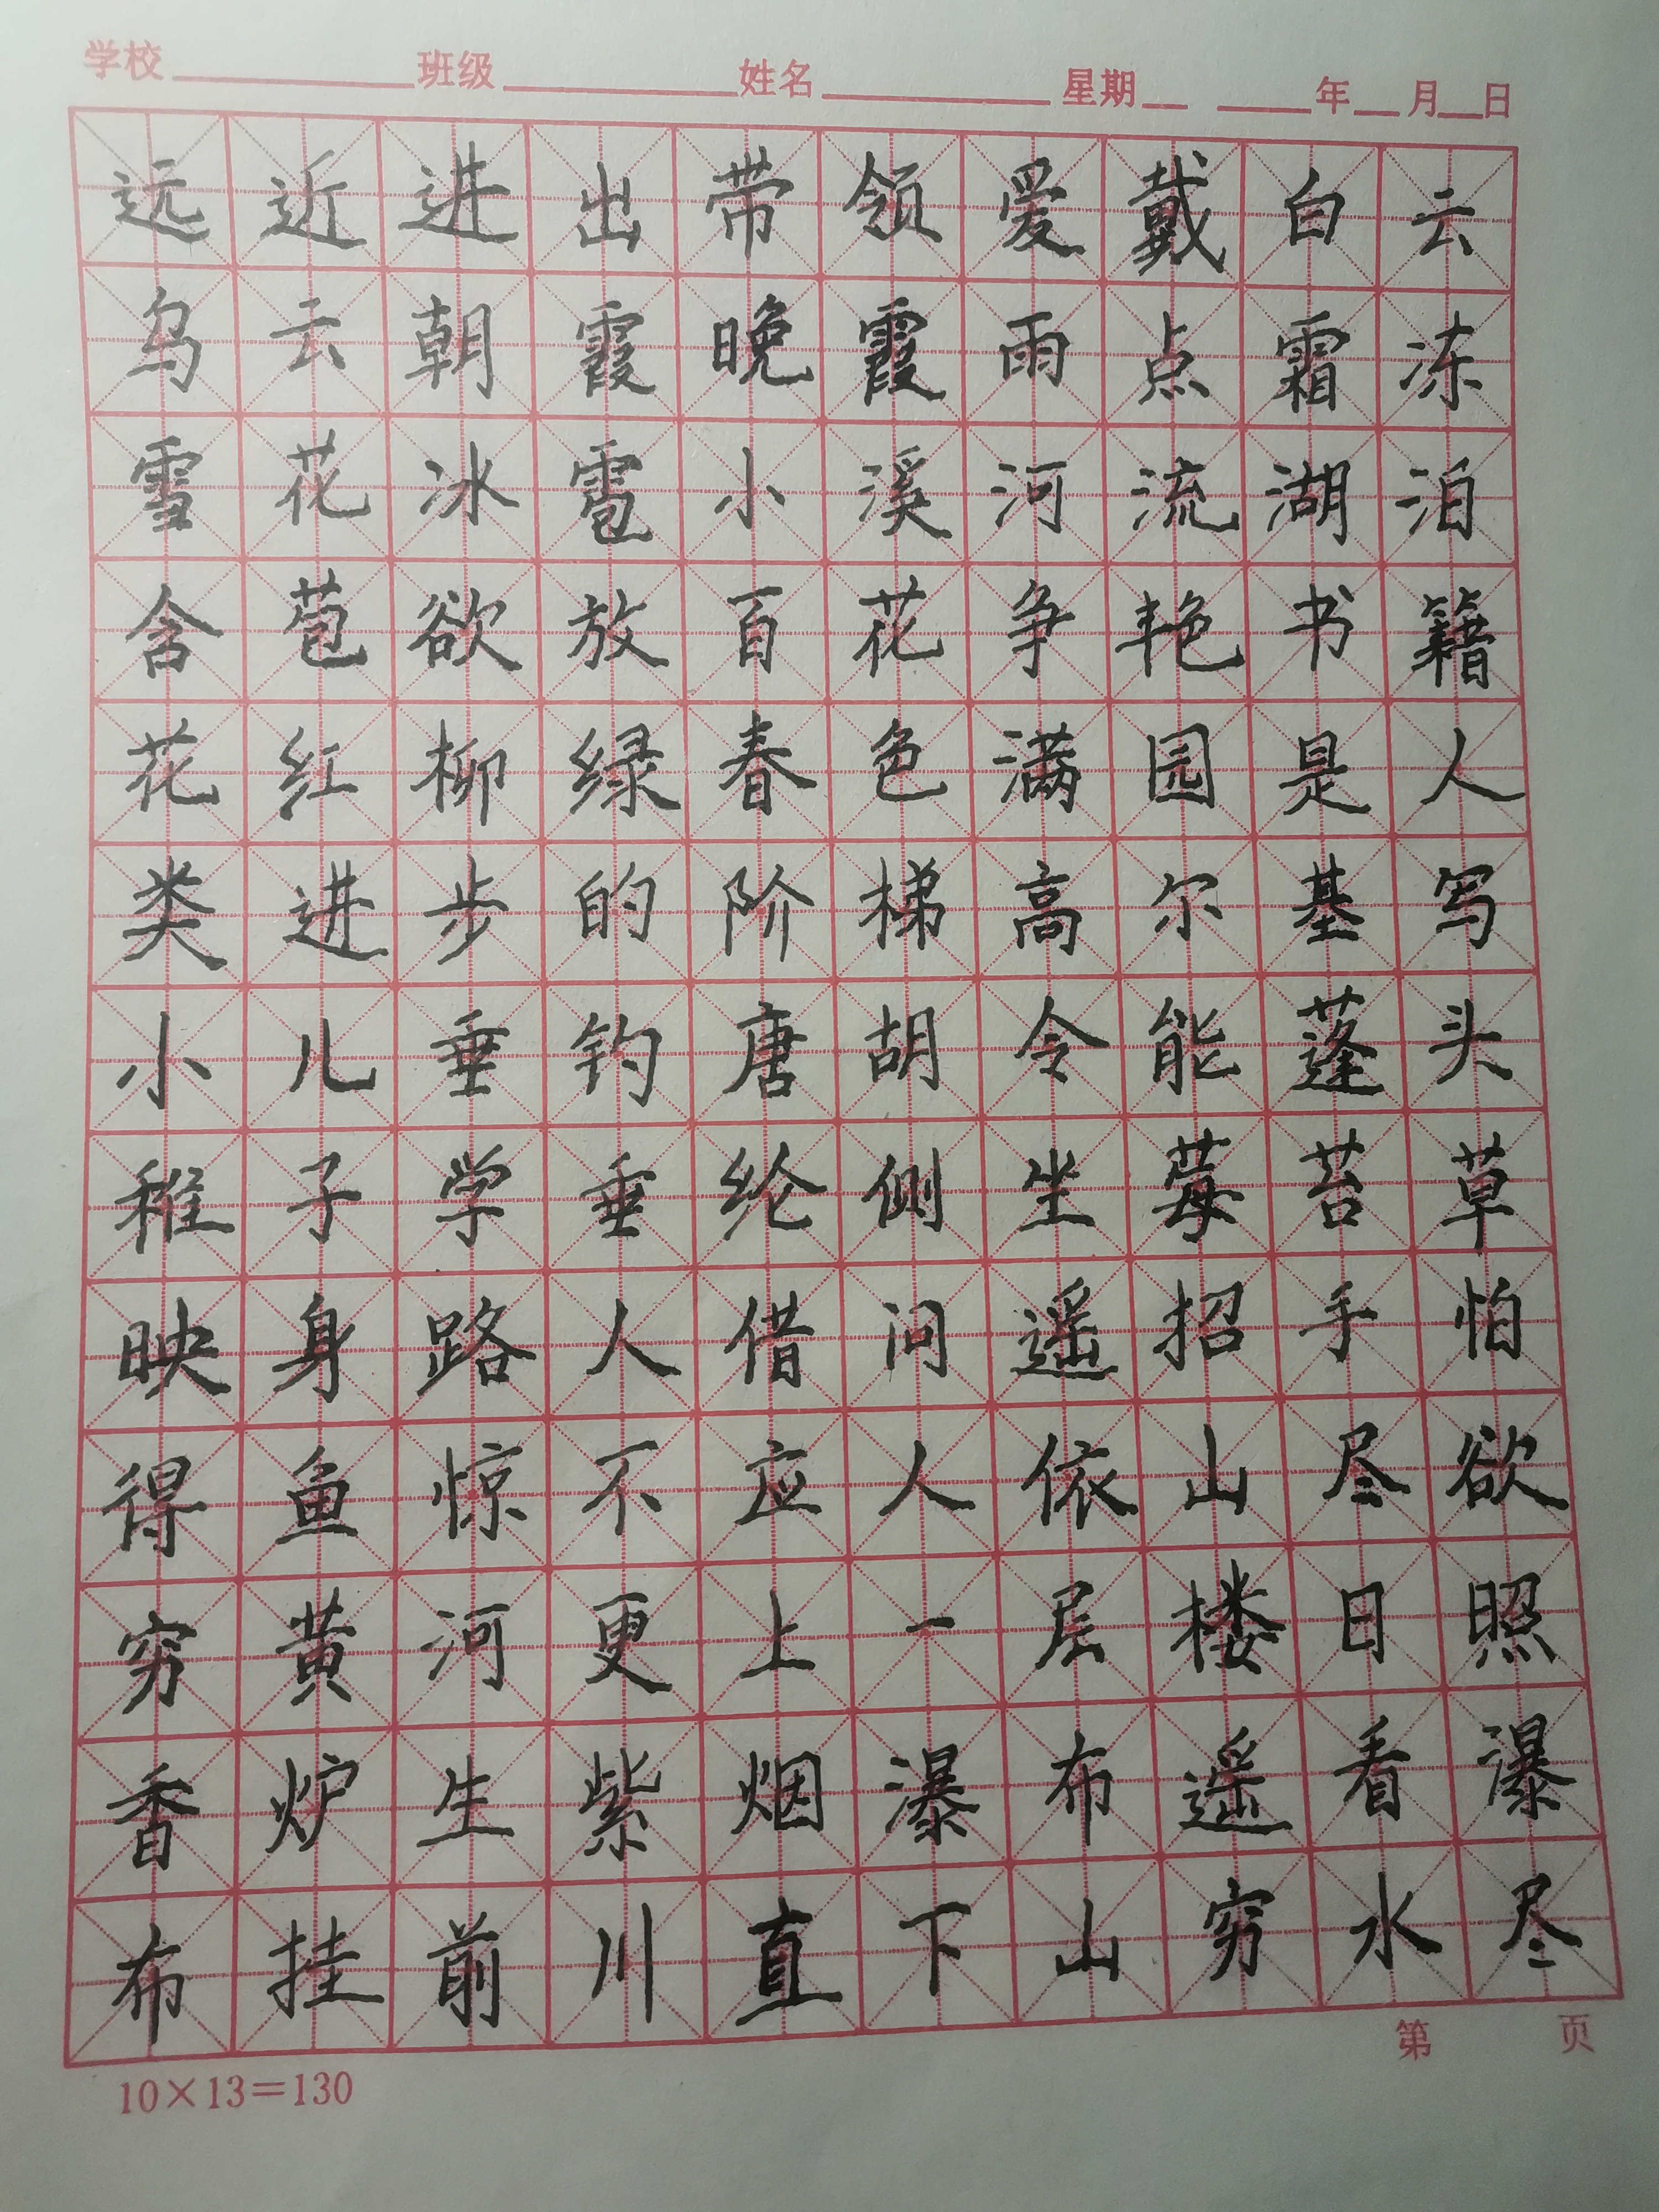 学校 班级 姓名 星期 年 月 日
远近进出带领爱戴白云
乌云朝霞晚霞雨点霜冻
雪花冰雹小溪河流湖泊
含苞欲放百花争艳书籍
花红柳绿春色满园是人
类进步的阶梯高尔基写
小儿垂钓唐胡令能蓬头
稚子学垂纶侧坐莓苔草
映身路人借问遥招手怕
得鱼惊不应人依山尽欲
穷黄河更上一层楼日照
香炉生紫烟瀑布遥看瀑
布挂前川直下山穷水尽
第 页
10×13=130